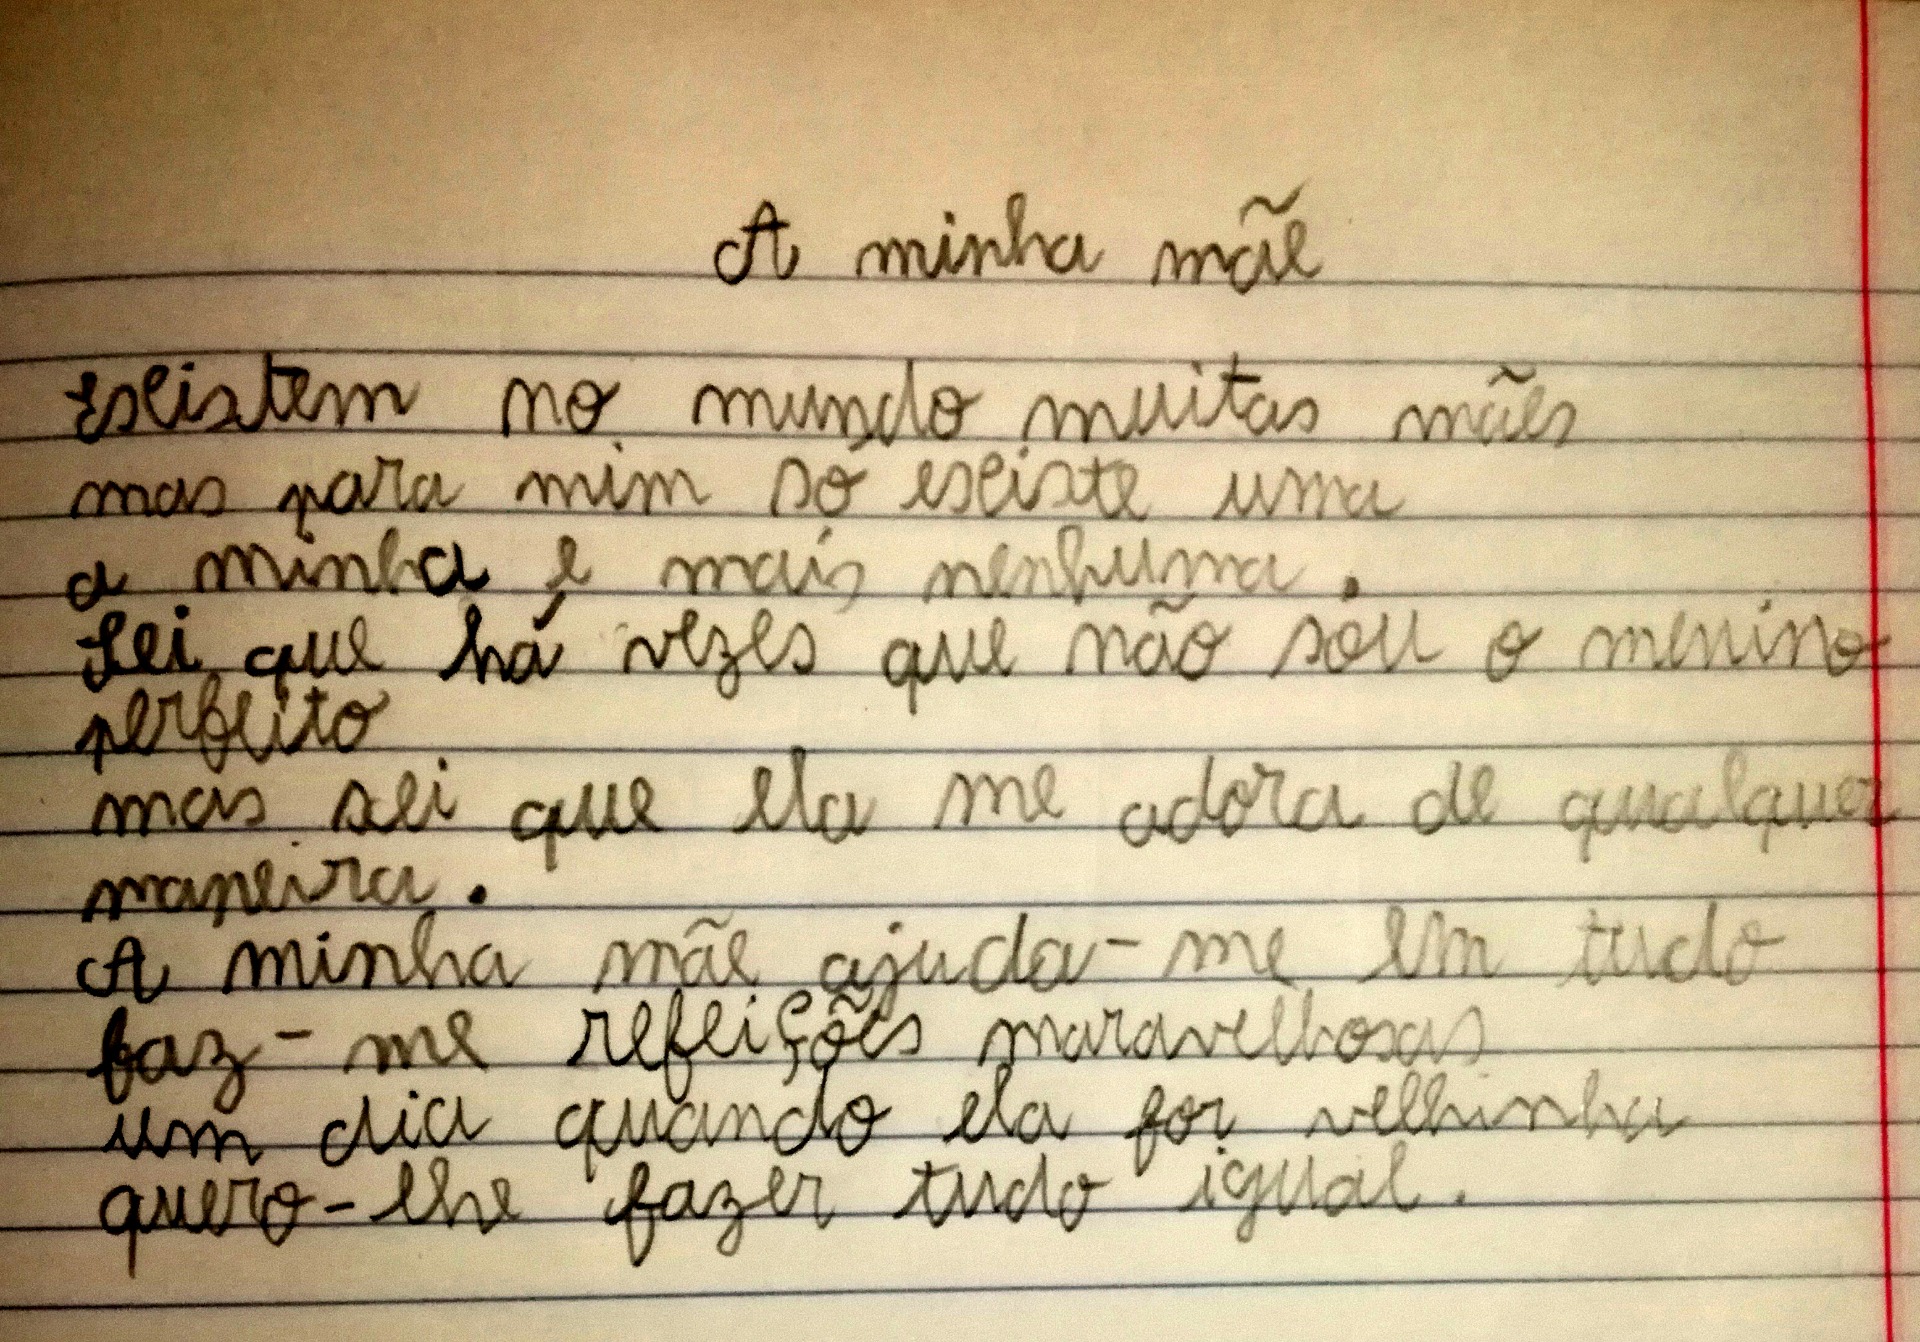 A minha mãe
Existem no mundo muitas mães
mas para mim só existe uma
a minha e mais nenhuma.
Sei que há vezes que não sou o menino
perfeito
mas sei que ela me adora de qualquer
maneira.
A minha mãe ajuda-me em tudo
faz-me refeições maravelhosas
um dia quando ela for velhinha
quero-lhe fazer tudo igual.